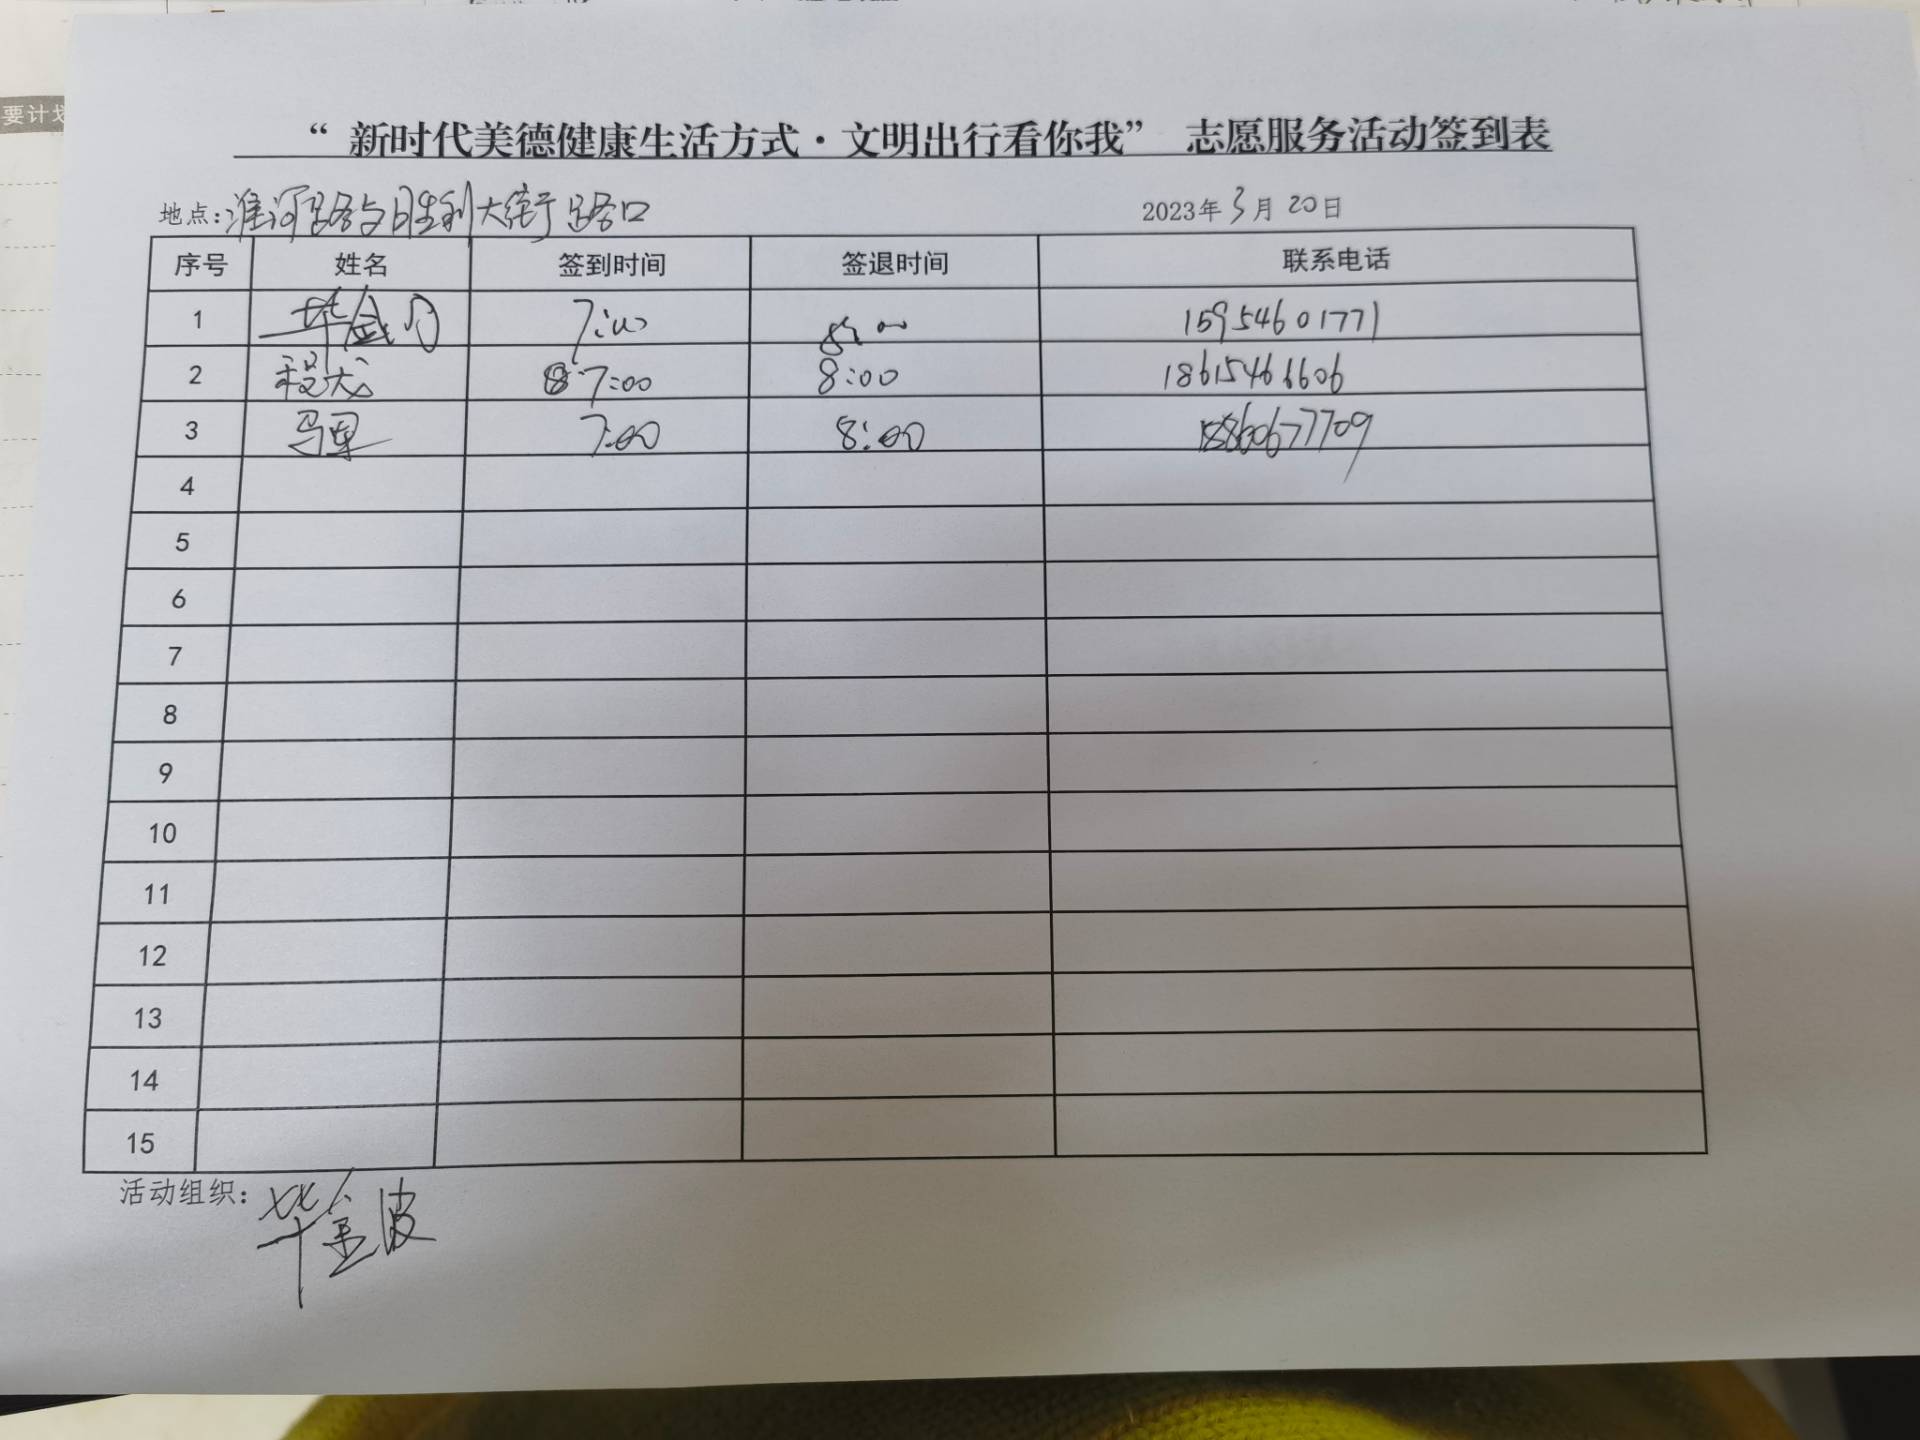 要计划
“新时代美德健康生活方式·文明出行看你我” 志愿服务活动签到表
地点:淮河路与胜利大街路口 2023年3月20日
序号 姓名 签到时间 签退时间 联系电话
1 7:00 8:00 15954601771
2 程龙 7:00 8:00 18615466606
3 7:00 8:00 18860677709
4
5
6
7
8
9
10
11
12
13
14
15
活动组织:毕金波